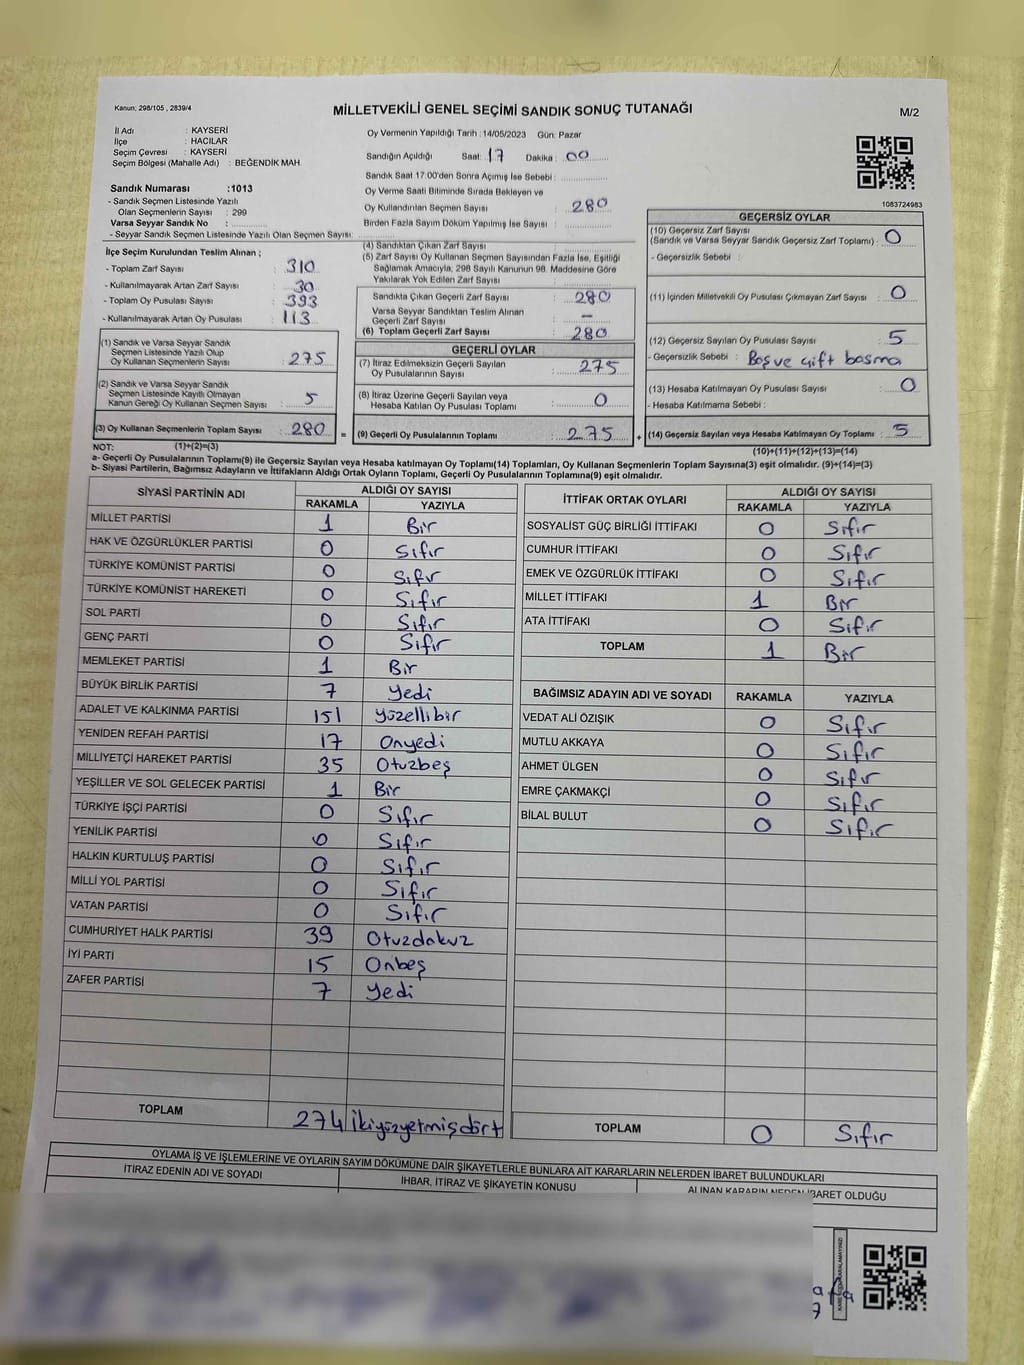 Kanun; 298/105 , 2839/4
MİLLETVEKİLİ GENEL SEÇİMİ SANDIK SONUÇ TUTANAĞI
M/2
İl Adı : KAYSERİ
İlçe : HACILAR
Seçim Çevresi : KAYSERİ
Seçim Bölgesi (Mahalle Adı) : BEĞENDİK MAH.
Oy Vermenin Yapıldığı Tarih : 14/05/2023 Gün: Pazar
Sandığın Açıldığı Saat: 17 Dakika : 00
Sandık Saat 17.00'den Sonra Açımış İse Sebebi :
Oy Verme Saati Bitiminde Sırada Bekleyen ve
Oy Kullandırılan Seçmen Sayısı : 280
Birden Fazla Sayım Döküm Yapılmış İse Sayısı :
1083724983
Sandık Numarası :1013
- Sandık Seçmen Listesinde Yazılı
Olan Seçmenlerin Sayısı : 299
Varsa Seyyar Sandık No :
- Seyyar Sandık Seçmen Listesinde Yazılı Olan Seçmen Sayısı:
İlçe Seçim Kurulundan Teslim Alınan ;
- Toplam Zarf Sayısı : 310
- Kullanılmayarak Artan Zarf Sayısı : 30
- Toplam Oy Pusulası Sayısı : 393
- Kullanılmayarak Artan Oy Pusulası : 113
(1) Sandık ve Varsa Seyyar Sandık
Seçmen Listesinde Yazılı Olup
Oy Kullanan Seçmenlerin Sayısı : 275
(2) Sandık ve Varsa Seyyar Sandık
Seçmen Listesinde Kayıtlı Olmayan
Kanun Gereği Oy Kullanan Seçmen Sayısı : 5
(3) Oy Kullanan Seçmenlerin Toplam Sayısı : 280 =
(4) Sandıktan Çıkan Zarf Sayısı :
(5) Zarf Sayısı Oy Kullanan Seçmen Sayısından Fazla İse, Eşitliği
Sağlamak Amacıyla, 298 Sayılı Kanunun 98. Maddesine Göre
Yakılarak Yok Edilen Zarf Sayısı :
Sandıkta Çıkan Geçerli Zarf Sayısı : 280
Varsa Seyyar Sandıktan Teslim Alınan
Geçerli Zarf Sayısı : -
(6) Toplam Geçerli Zarf Sayısı : 280
GEÇERLİ OYLAR
(7) İtiraz Edilmeksizin Geçerli Sayılan
Oy Pusulalarının Sayısı : 275
(8) İtiraz Üzerine Geçerli Sayılan veya
Hesaba Katılan Oy Pusulası Toplamı : 0
(9) Geçerli Oy Pusulalarının Toplamı : 275 +
GEÇERSİZ OYLAR
(10) Geçersiz Zarf Sayısı
(Sandık ve Varsa Seyyar Sandık Geçersiz Zarf Toplamı) : 0
- Geçersizlik Sebebi :
(11) İçinden Milletvekili Oy Pusulası Çıkmayan Zarf Sayısı : 0
(12) Geçersiz Sayılan Oy Pusulası Sayısı : 5
- Geçersizlik Sebebi : Boş ve çift basma
(13) Hesaba Katılmayan Oy Pusulası Sayısı : 0
- Hesaba Katılmama Sebebi :
(14) Geçersiz Sayılan veya Hesaba Katılmayan Oy Toplamı : 5
NOT: (1)+(2)=(3)
(10)+(11)+(12)+(13)=(14)
a- Geçerli Oy Pusulalarının Toplamı(9) ile Geçersiz Sayılan veya Hesaba katılmayan Oy Toplamı(14) Toplamları, Oy Kullanan Seçmenlerin Toplam Sayısına(3) eşit olmalıdır. (9)+(14)=(3)
b- Siyasi Partilerin, Bağımsız Adayların ve İttifakların Aldığı Oyların Toplamı, Geçerli Oy Pusulalarının Toplamına(9) eşit olmalıdır.
SİYASİ PARTİNİN ADI ALDIĞI OY SAYISI
RAKAMLA YAZIYLA
MİLLET PARTİSİ 1 Bir
HAK VE ÖZGÜRLÜKLER PARTİSİ 0 Sıfır
TÜRKİYE KOMÜNİST PARTİSİ 0 Sıfır
TÜRKİYE KOMÜNİST HAREKETİ 0 Sıfır
SOL PARTİ 0 Sıfır
GENÇ PARTİ 0 Sıfır
MEMLEKET PARTİSİ 1 Bir
BÜYÜK BİRLİK PARTİSİ 7 Yedi
ADALET VE KALKINMA PARTİSİ 151 Yüzellibir
YENİDEN REFAH PARTİSİ 17 Onyedi
MİLLİYETÇİ HAREKET PARTİSİ 35 Otuzbeş
YEŞİLLER VE SOL GELECEK PARTİSİ 1 Bir
TÜRKİYE İŞÇİ PARTİSİ 0 Sıfır
YENİLİK PARTİSİ 0 Sıfır
HALKIN KURTULUŞ PARTİSİ 0 Sıfır
MİLLİ YOL PARTİSİ 0 Sıfır
VATAN PARTİSİ 0 Sıfır
CUMHURİYET HALK PARTİSİ 39 Otuzdokuz
İYİ PARTİ 15 Onbeş
ZAFER PARTİSİ 7 Yedi
TOPLAM 274 ikiyüzyetmişdört
İTTİFAK ORTAK OYLARI ALDIĞI OY SAYISI
RAKAMLA YAZIYLA
SOSYALİST GÜÇ BİRLİĞİ İTTİFAKI 0 Sıfır
CUMHUR İTTİFAKI 0 Sıfır
EMEK VE ÖZGÜRLÜK İTTİFAKI 0 Sıfır
MİLLET İTTİFAKI 1 Bir
ATA İTTİFAKI 0 Sıfır
TOPLAM 1 Bir
BAĞIMSIZ ADAYIN ADI VE SOYADI RAKAMLA YAZIYLA
VEDAT ALİ ÖZIŞIK 0 Sıfır
MUTLU AKKAYA 0 Sıfır
AHMET ÜLGEN 0 Sıfır
EMRE ÇAKMAKÇİ 0 Sıfır
BİLAL BULUT 0 Sıfır
TOPLAM 0 Sıfır
OYLAMA İŞ VE İŞLEMLERİNE VE OYLARIN SAYIM DÖKÜMÜNE DAİR ŞİKAYETLERLE BUNLARA AİT KARARLARIN NELERDEN İBARET BULUNDUKLARI
İTİRAZ EDENİN ADI VE SOYADI İHBAR, İTİRAZ VE ŞİKAYETİN KONUSU ALINAN KARARIN NEDEN İBARET OLDUĞU